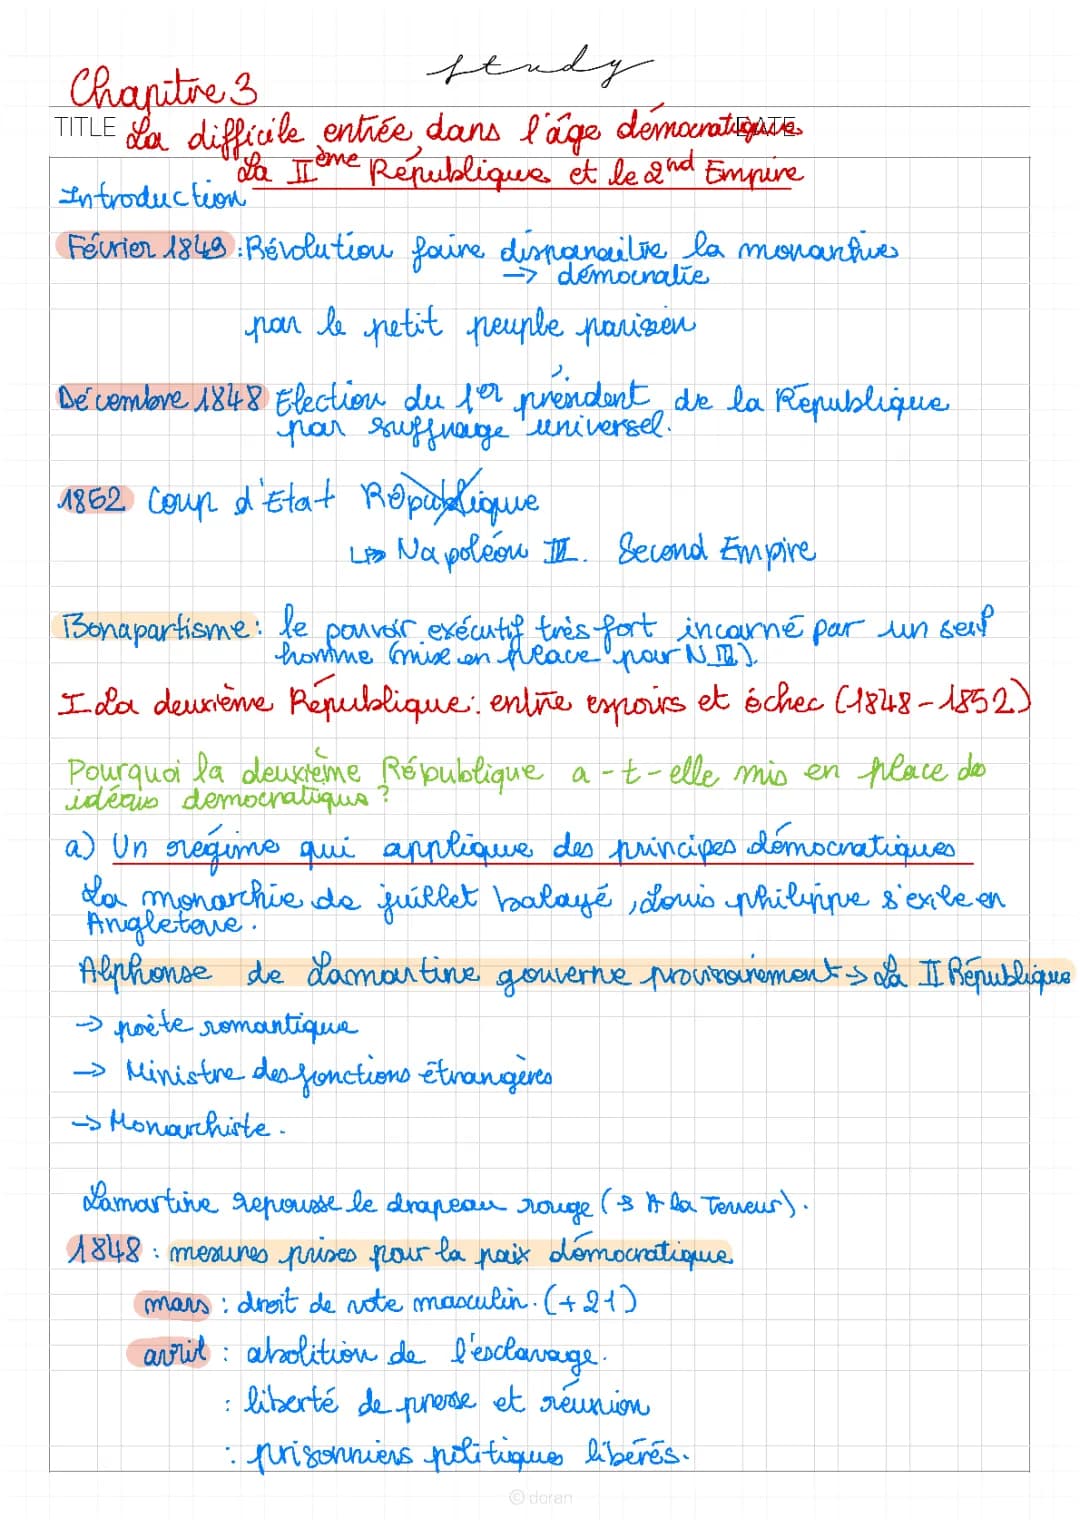 study
Chapitre 3
TITLE La difficile entrée dans l'âge démocratique DATE
La IIème République et le 2nd Empire
Introduction
Février 1849 : Révolution faire disparaître la monarhie
→ démocratie
par le petit peuple parisien
Décembre 1848 Election du 1er président de la République
par suffrage universel.
1852 Coup d'Etat République
↳ Napoléon III. Second Empire
Bonapartisme : le pouvoir exécutif très fort incarné par un seul
homme (mise en place pour N III).
I La deuxième République : entre espoirs et échec (1848-1852)
Pourquoi la deuxième République a-t-elle mis en place des
idéaux démocratiques ?
a) Un régime qui applique des principes démocratiques
La monarchie de juillet balayé, Louis philippe s'exile en
Angleterre.
Alphonse de Lamartine gouverne provisoirement → La II République
→ poète romantique
→ Ministre des fonctions étrangères
→ Monarchiste.
Lamartine repousse le drapeau rouge ( la Terreur).
1848 : mesures prises pour la paix démocratique
mars : droit de vote masculin. (+21)
avril : abolition de l'esclavage.
: liberté de presse et réunion
: prisonniers politiques libérés.
© doran